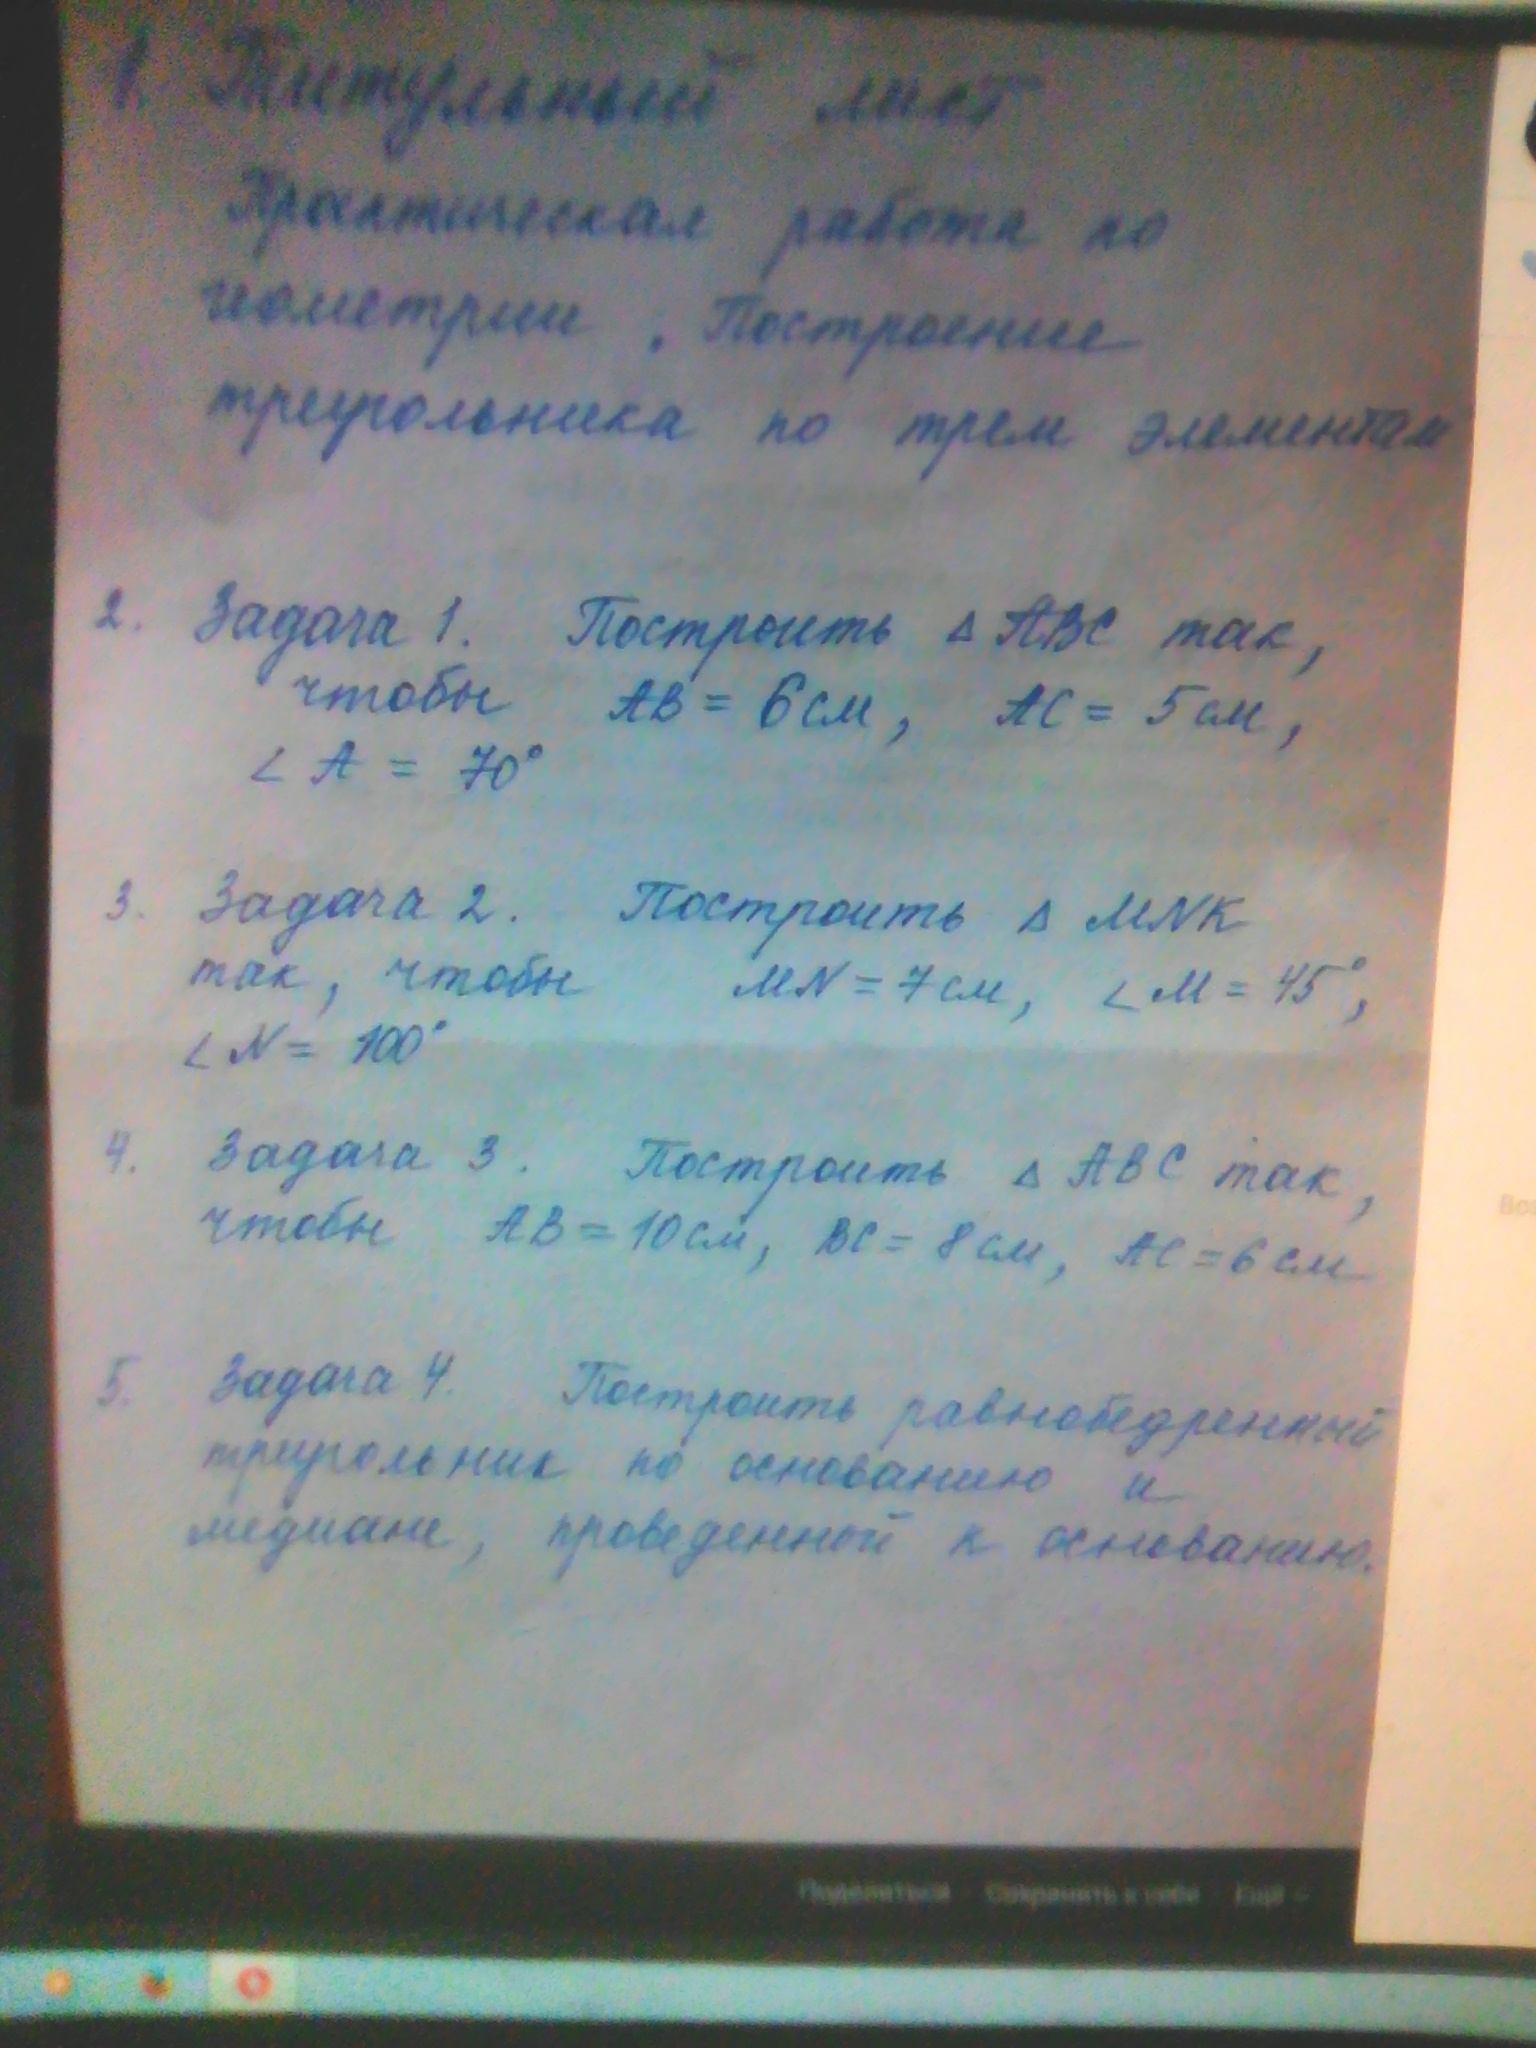 1. Титульный лист
Практическая работа по
геометрии. Построение
треугольника по трем элементам
2. Задача 1. Построить △ ABC так,
чтобы AB = 6 см, AC = 5 см,
∠ A = 70°
3. Задача 2. Построить △ MNK
так, чтобы MN = 7 см, ∠ M = 45°,
∠ N = 100°
4. Задача 3. Построить △ ABC так,
чтобы AB = 10 см, BC = 8 см, AC = 6 см
5. Задача 4. Построить равнобедренный
треугольник по основанию и
медиане, проведенной к основанию.
Поделиться Сохранить к себе Ещё